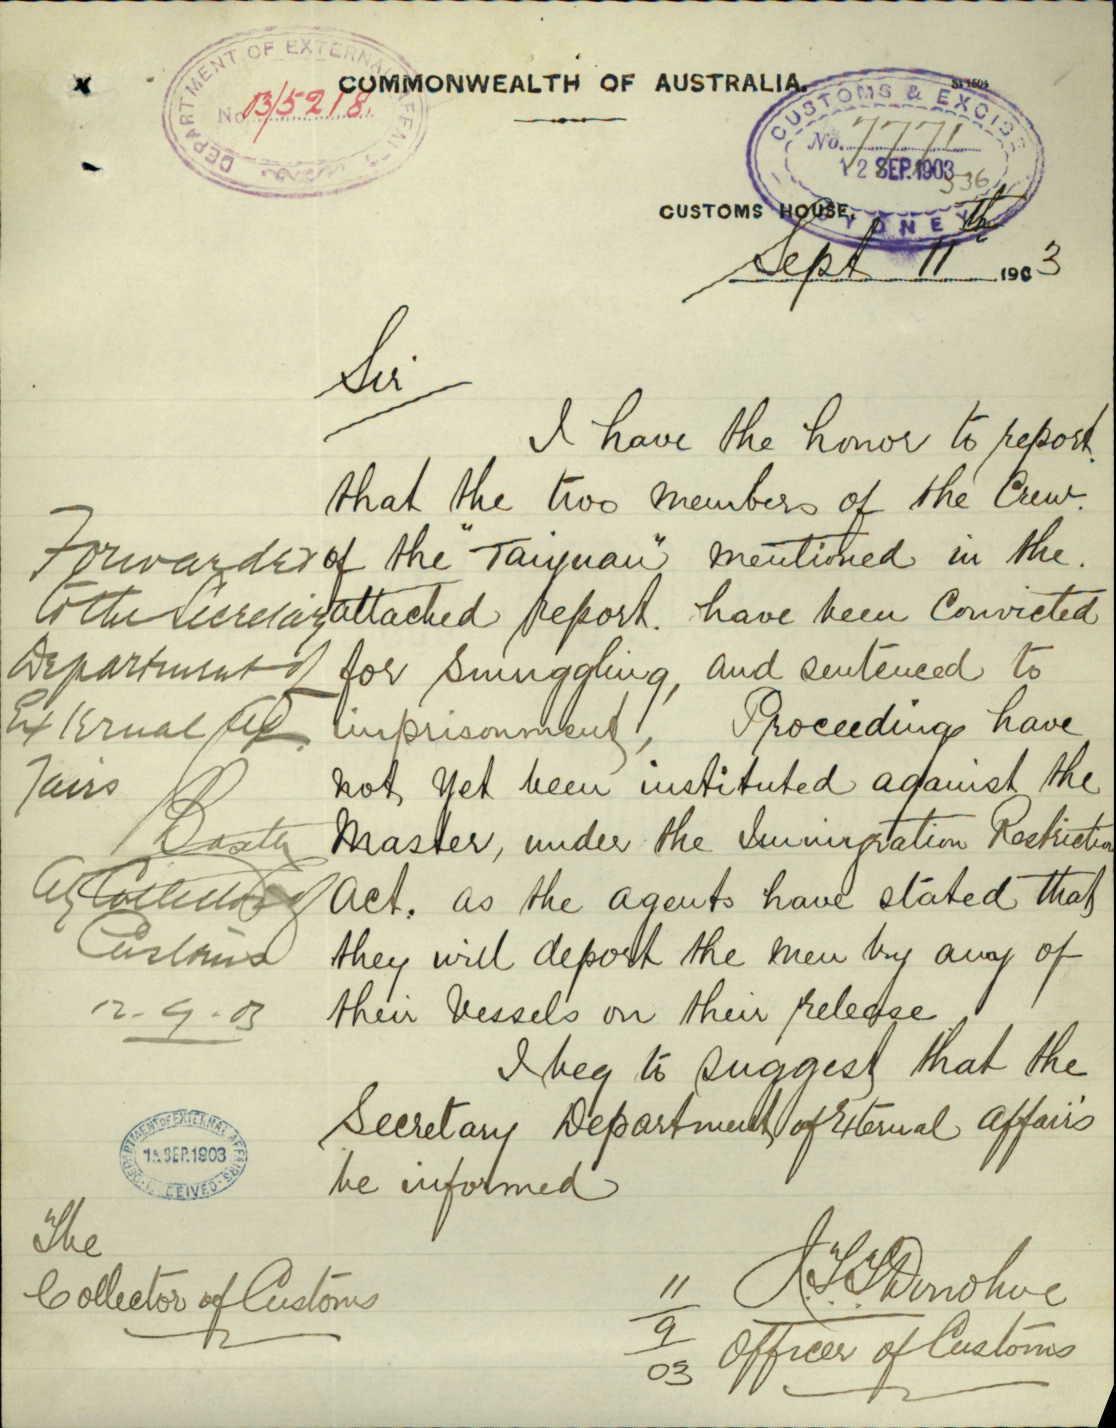 COMMONWEALTH OF AUSTRALIA.
DEPARTMENT OF EXTERNAL AFFAIRS
No. 03/5218.
CUSTOMS & EXCISE
No. 7771
12 SEP. 1903
SYDNEY
CUSTOMS HOUSE,
Sept 11th 1903
Sir
I have the honor to report
that the two members of the Crew
of the "Taiyuan" mentioned in the
attached report. have been convicted
for smuggling, and sentenced to
imprisonment, Proceedings have
not yet been instituted against the
Master, under the Immigration Restriction
Act. as the agents have stated that
they will deport the men by any of
their Vessels on their release
I beg to suggest that the
Secretary Department of External Affairs
be informed
J.T.T. Donohoe
Officer of Customs
11
9
03
The
Collector of Customs
Forwarded
to the Secretary
Department of
External Af
fairs
Baxter
Actg Collector of
Customs
12-9-03
DEPARTMENT OF EXTERNAL AFFAIRS
SEP. 1903
RECEIVED